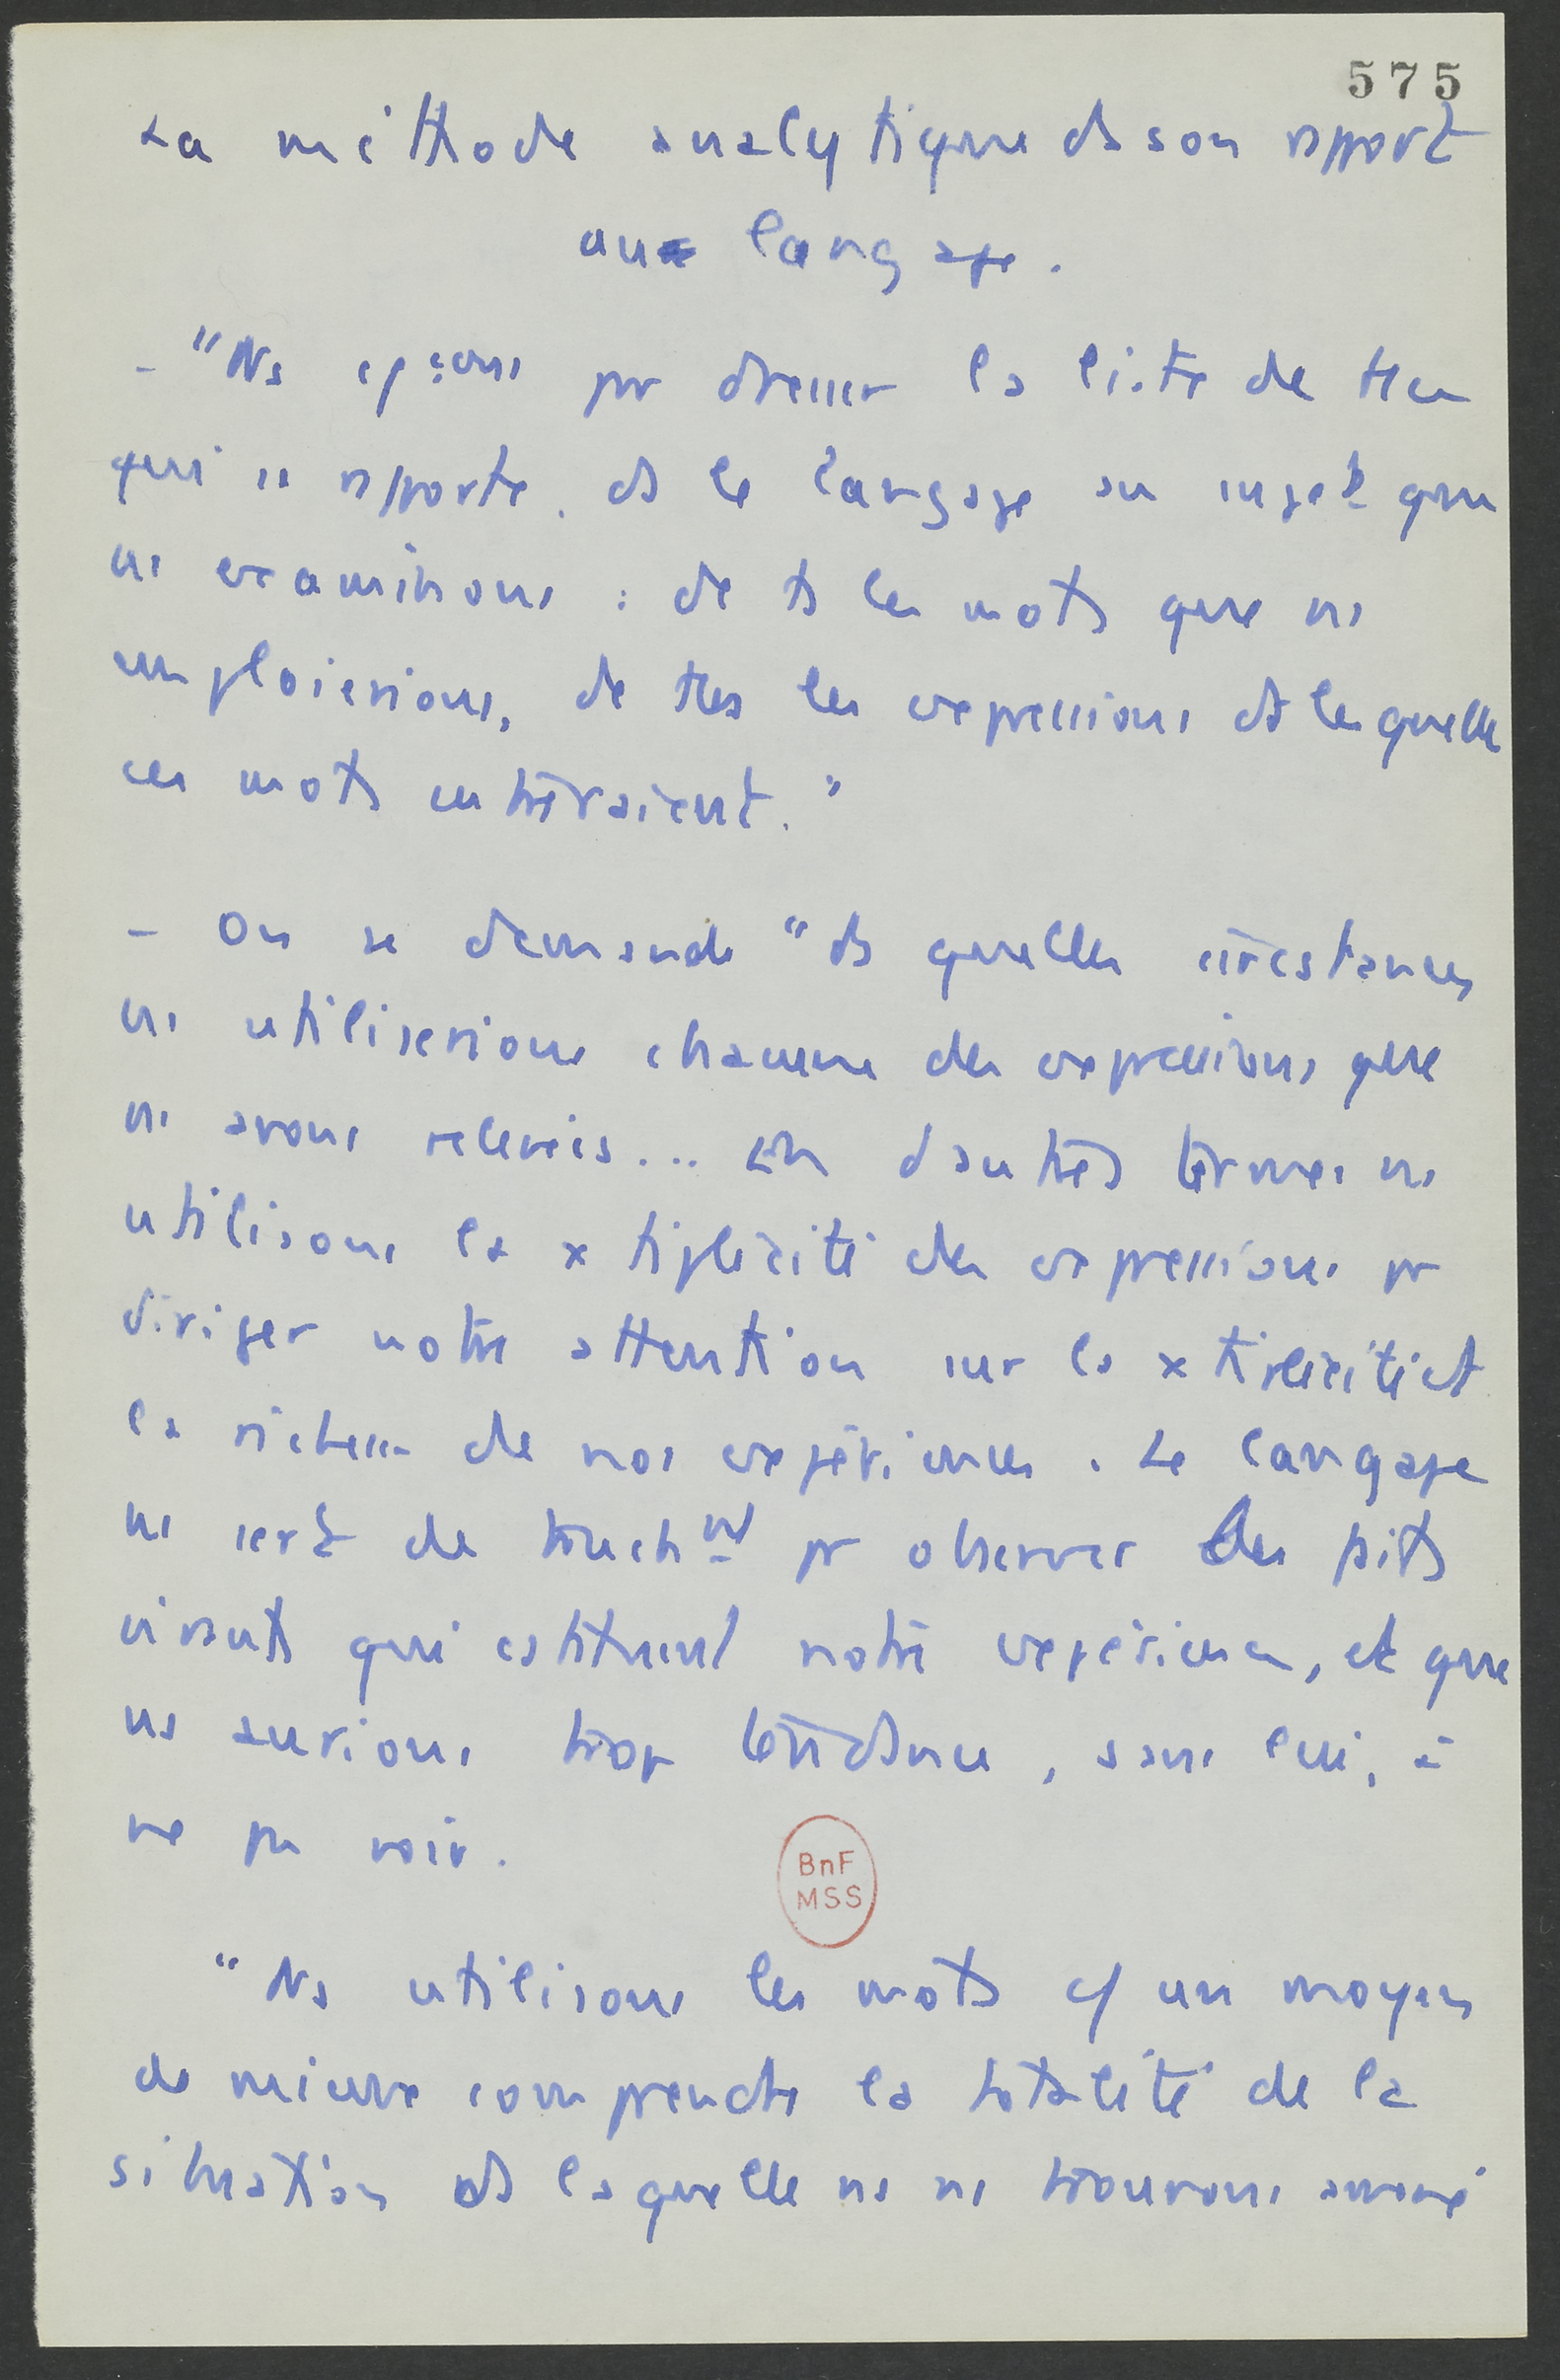 575
La méthode analytique ds son rpport
au langage.
- "Ns
pr dresser la liste de tt ce
qui se rpporte ds le langage au sujet que
ns examinons : de ts les mots que ns
emploierions, de ttes les expressions ds lesquelles
ces mots entreraient."
- On se demande "ds quelles circstances
ns utiliserions chacune des expressions que
ns avons relevées... En d'autres termes ns
utilisons la xtiplicité des expressions pr
diriger notre attention sur la xtiplicité et
la richesse de nos expériences. Le langage
ns sert de truchnt pr observer les faits
vivants qui cstituent notre expérience, et que
ns aurions trop tendance, sans lui, à
ne pas voir.
BnF
MSS
"Ns utilisons les mots c/ un moyen
de mieux comprendre la totalité de la
situation ds laquelle ns ns trouvons amené